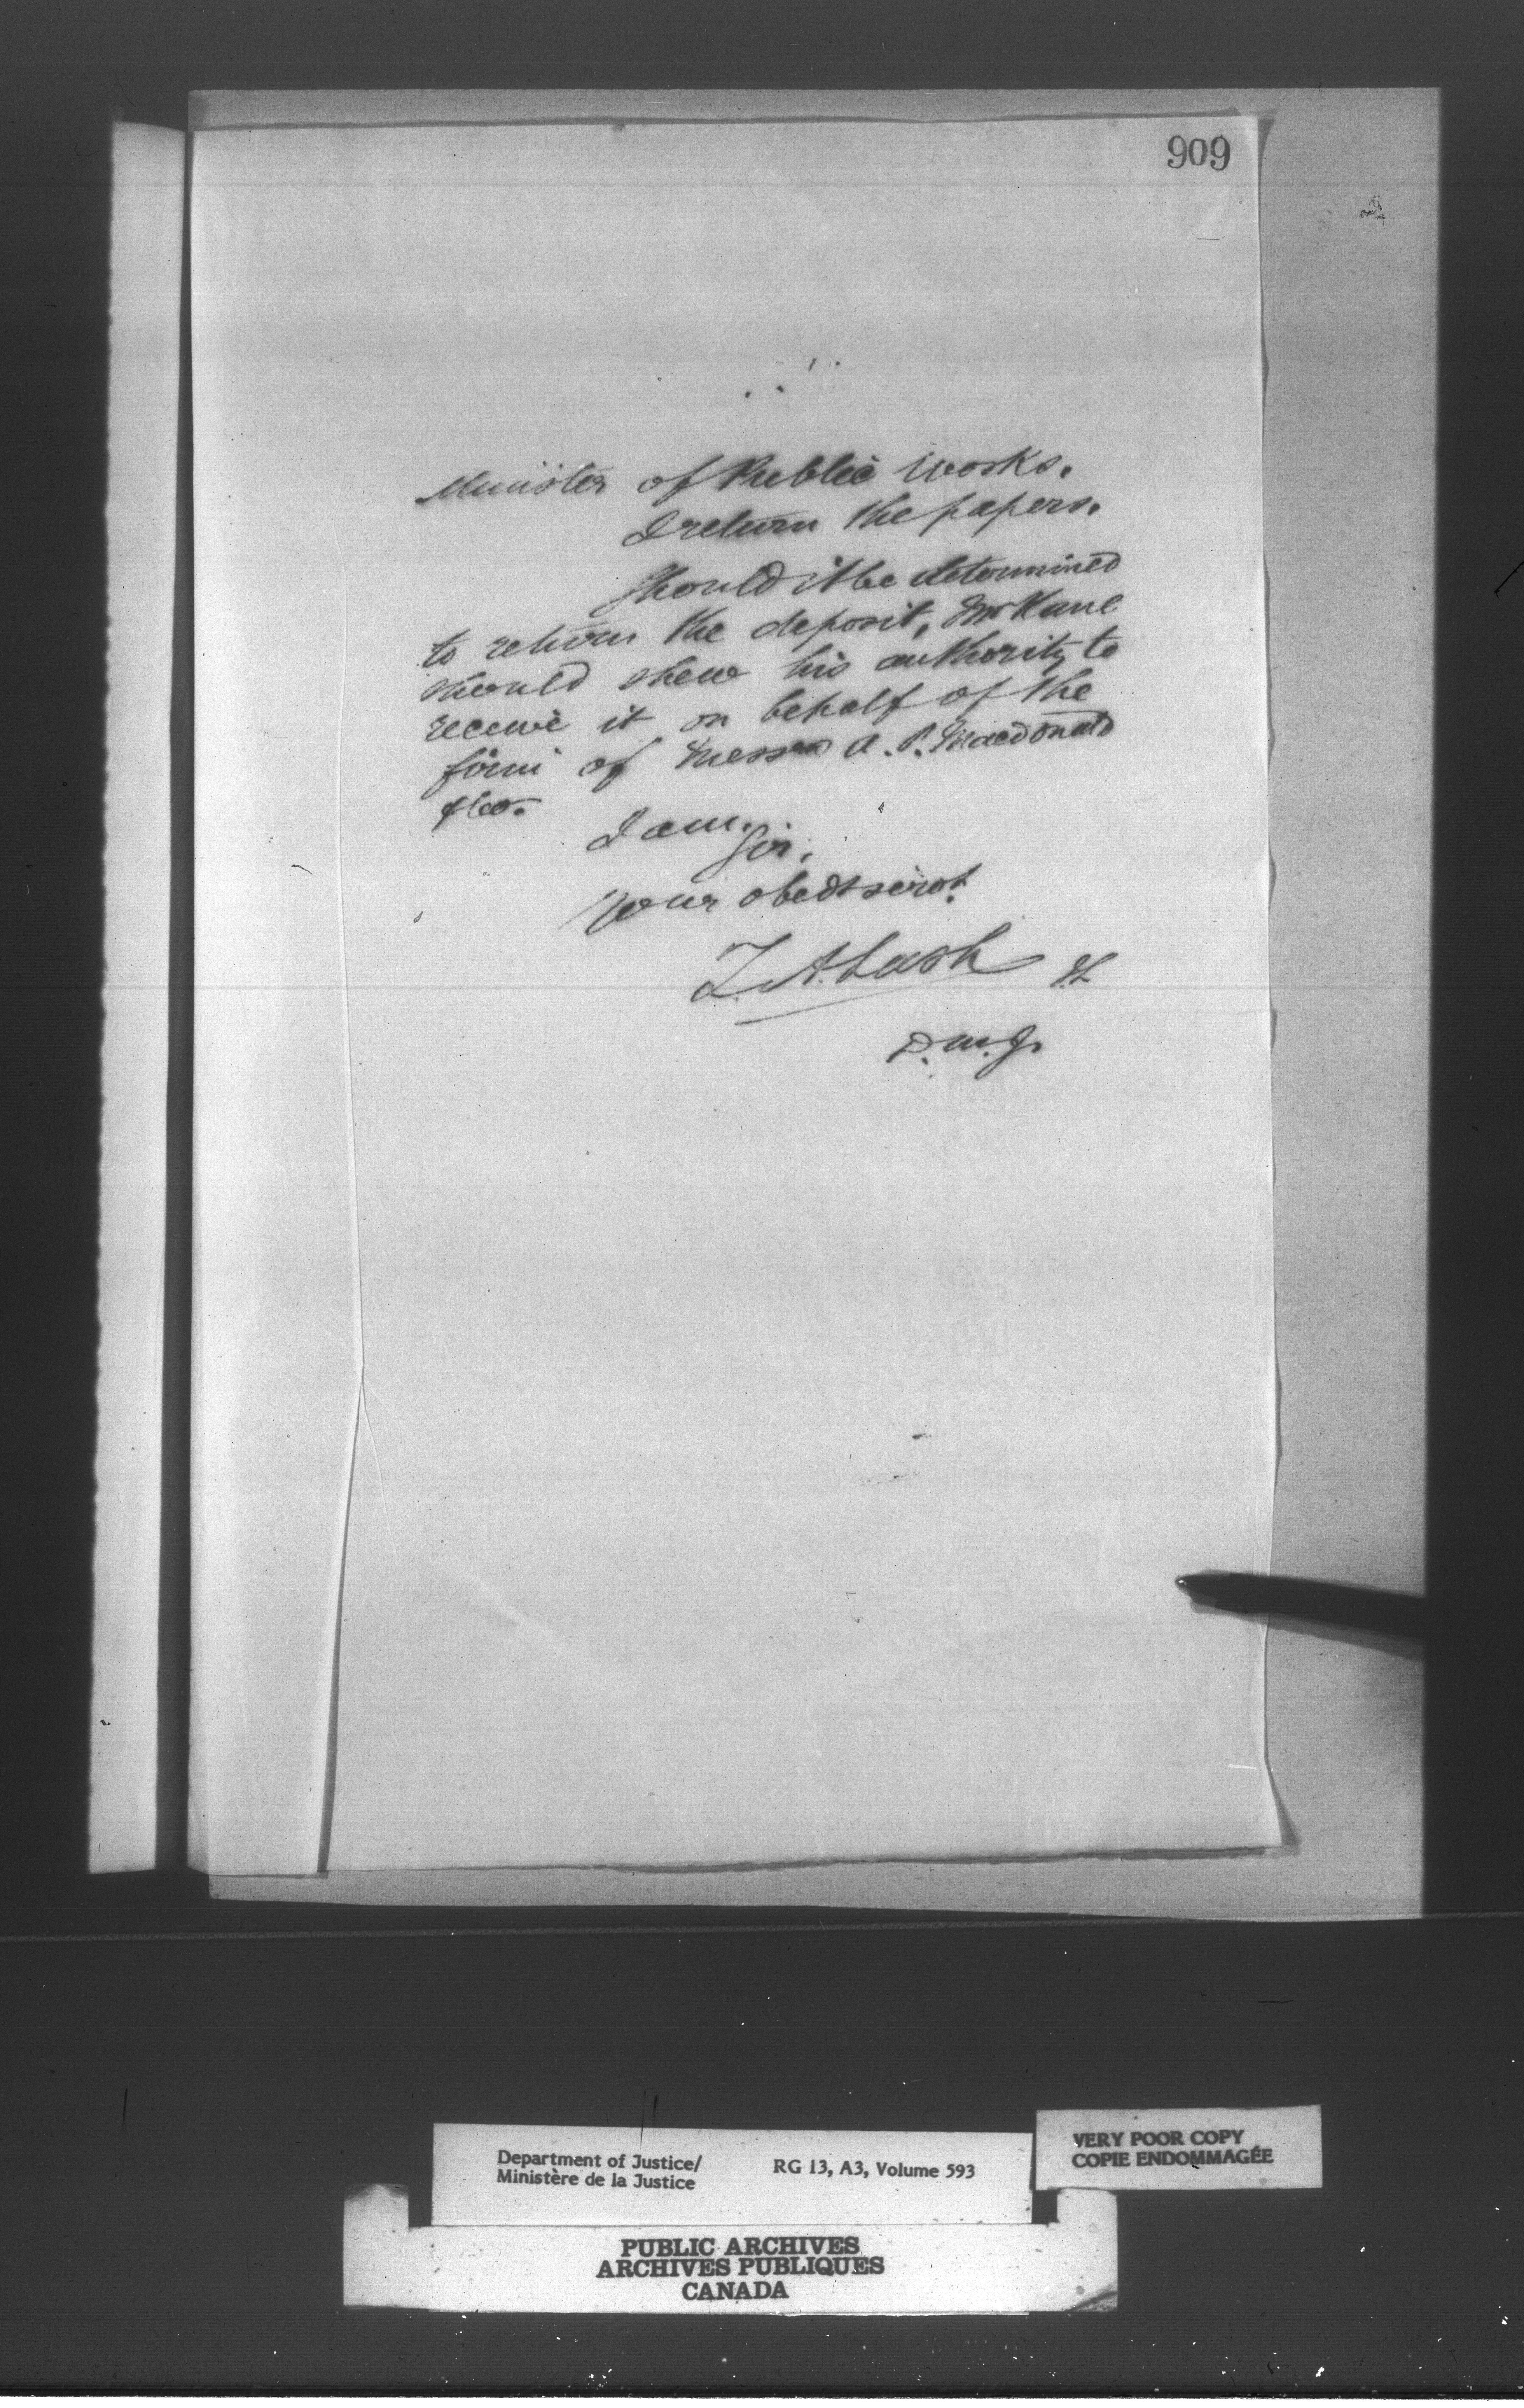 909
Minister of Public Works.
I return the papers.
Should it be determined
to return the deposit, Mr Kane
should shew his authority to
receive it on behalf of the
firm of Messrs A. P. Macdonald
& Co.
I am.
Sir,
Your obedt servt.
Z. A. Lash
D. M. J.
Department of Justice/
Ministère de la Justice
RG 13, A3, Volume 593
VERY POOR COPY
COPIE ENDOMMAGÉE
PUBLIC ARCHIVES
ARCHIVES PUBLIQUES
CANADA